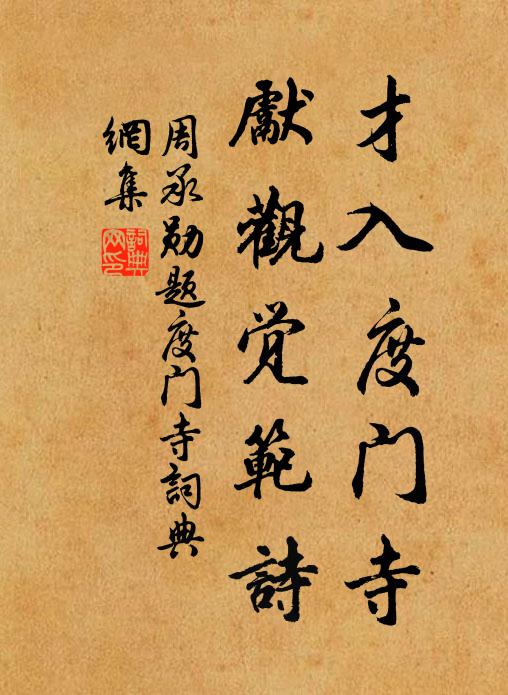 才入度门寺
獻觀觉範詩
周承勋题度门寺詞典
網集
詞典
网印